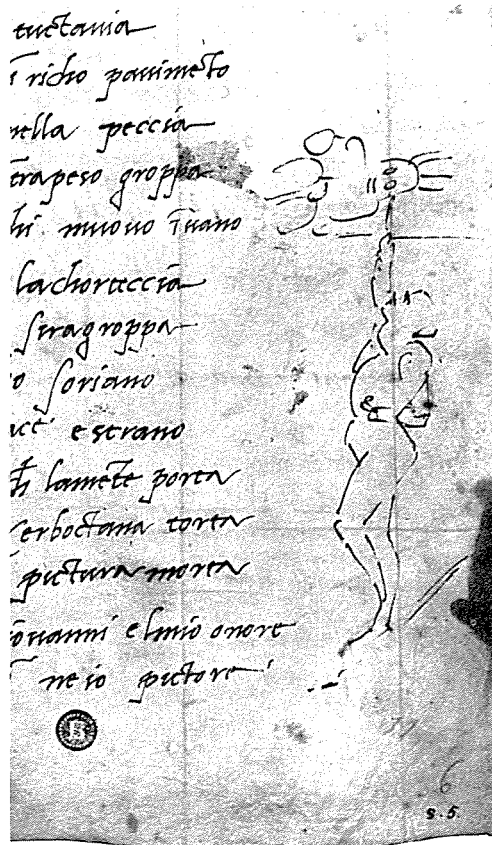 tuctavia
richo pavimēto
nella peccia
trapeso groppa
hi muovo ī vano
lachorteccia
siragroppa
o soriano
e strano
lamēte porta
cerboctana torta
pictura morta
giovanni elmio onore
ne io pictore
6
8.5.